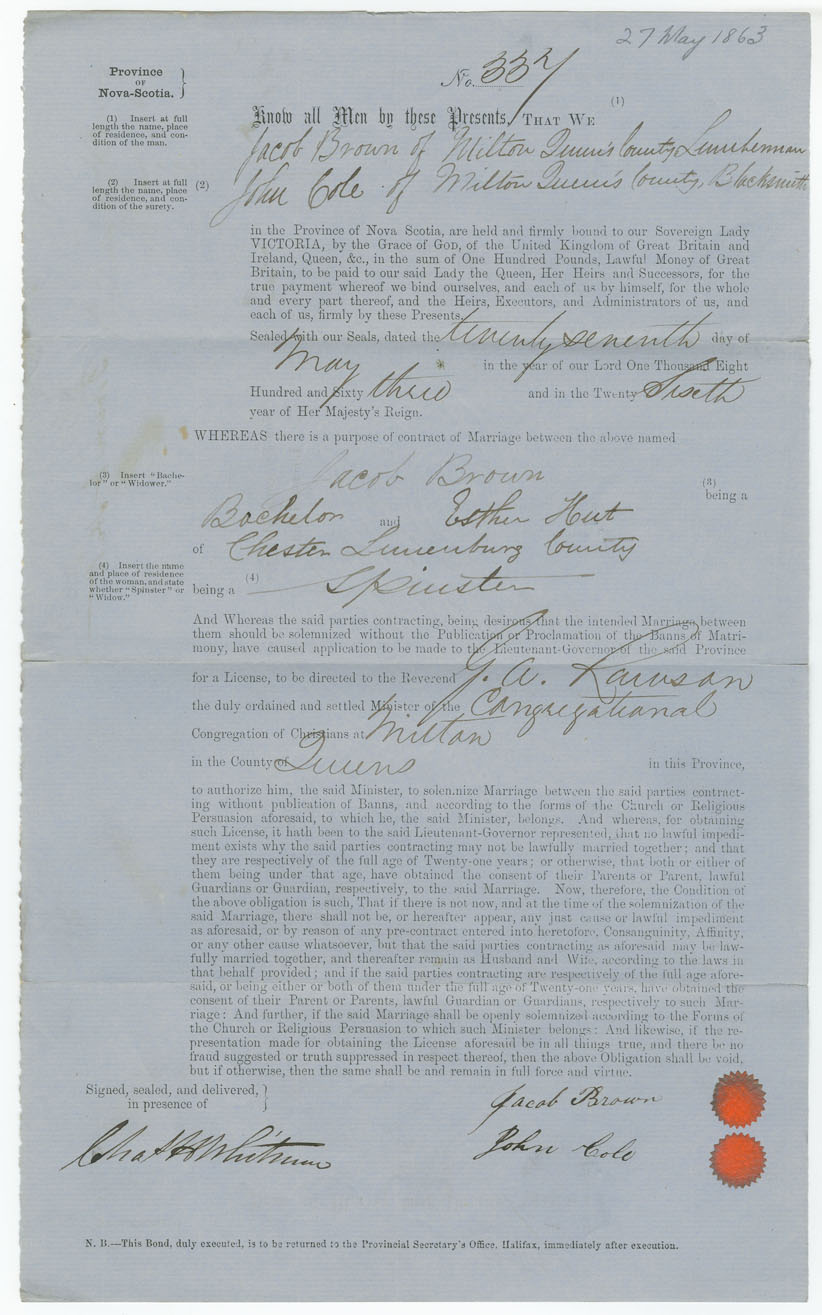 27 May 1863
Province
OF
Nova-Scotia. }
No. 337
(1) Insert at full
length the name, place
of residence, and con-
dition of the man.
Know all Men by these Presents, THAT WE (1)
Jacob Brown of Milton Queen's County Lumberman
(2) Insert at full
length the name, place
of residence, and con-
dition of the surety.
(2) John Cole of Milton Queen's County, Blacksmith
in the Province of Nova Scotia, are held and firmly bound to our Sovereign Lady
VICTORIA, by the Grace of God, of the United Kingdom of Great Britain and
Ireland, Queen, &c., in the sum of One Hundred Pounds, Lawful Money of Great
Britain, to be paid to our said Lady the Queen, Her Heirs and Successors, for the
true payment whereof we bind ourselves, and each of us by himself, for the whole
and every part thereof, and the Heirs, Executors, and Administrators of us, and
each of us, firmly by these Presents.
Sealed with our Seals, dated the twenty seventh day of
May in the year of our Lord One Thousand Eight
Hundred and Sixty three and in the Twenty Sixth
year of Her Majesty's Reign.
WHEREAS there is a purpose of contract of Marriage between the above named
(3) Insert "Bache-
lor" or "Widower."
Jacob Brown (3)
being a
Bachelor and Esther Hut
of Chester Lunenburg County
(4) Insert the name
and place of residence
of the woman, and state
whether "Spinster" or
"Widow."
being a (4) Spinster
And Whereas the said parties contracting, being desirous that the intended Marriage between
them should be solemnized without the Publication or Proclamation of the Banns of Matri-
mony, have caused application to be made to the Lieutenant-Governor of the said Province
for a License, to be directed to the Reverend G. A. Rawson
the duly ordained and settled Minister of the Congregational
Congregation of Christians at Milton
in the County of Queens in this Province,
to authorize him, the said Minister, to solemnize Marriage between the said parties contract-
ing without publication of Banns, and according to the forms of the Church or Religious
Persuasion aforesaid, to which he, the said Minister, belongs. And whereas, for obtaining
such License, it hath been to the said Lieutenant-Governor represented, that no lawful impedi-
ment exists why the said parties contracting may not be lawfully married together; and that
they are respectively of the full age of Twenty-one years; or otherwise, that both or either of
them being under that age, have obtained the consent of their Parents or Parent, lawful
Guardians or Guardian, respectively, to the said Marriage. Now, therefore, the Condition of
the above obligation is such, That if there is not now, and at the time of the solemnization of the
said Marriage, there shall not be, or hereafter appear, any just cause or lawful impediment
as aforesaid, or by reason of any pre-contract entered into heretofore, Consanguinity, Affinity,
or any other cause whatsoever, but that the said parties contracting as aforesaid may be law-
fully married together, and thereafter remain as Husband and Wife, according to the laws in
that behalf provided; and if the said parties contracting are respectively of the full age afore-
said, or being either or both of them under the full age of Twenty-one years, have obtained the
consent of their Parent or Parents, lawful Guardian or Guardians, respectively to such Mar-
riage: And further, if the said Marriage shall be openly solemnized according to the Forms of
the Church or Religious Persuasion to which such Minister belongs: And likewise, if the re-
presentation made for obtaining the License aforesaid be in all things true, and there be no
fraud suggested or truth suppressed in respect thereof, then the above Obligation shall be void,
but if otherwise, then the same shall be and remain in full force and virtue.
Signed, sealed, and delivered,
in presence of }
Jacob Brown
Chas H Whitman
John Cole
N. B.—This Bond, duly executed, is to be returned to the Provincial Secretary's Office, Halifax, immediately after execution.